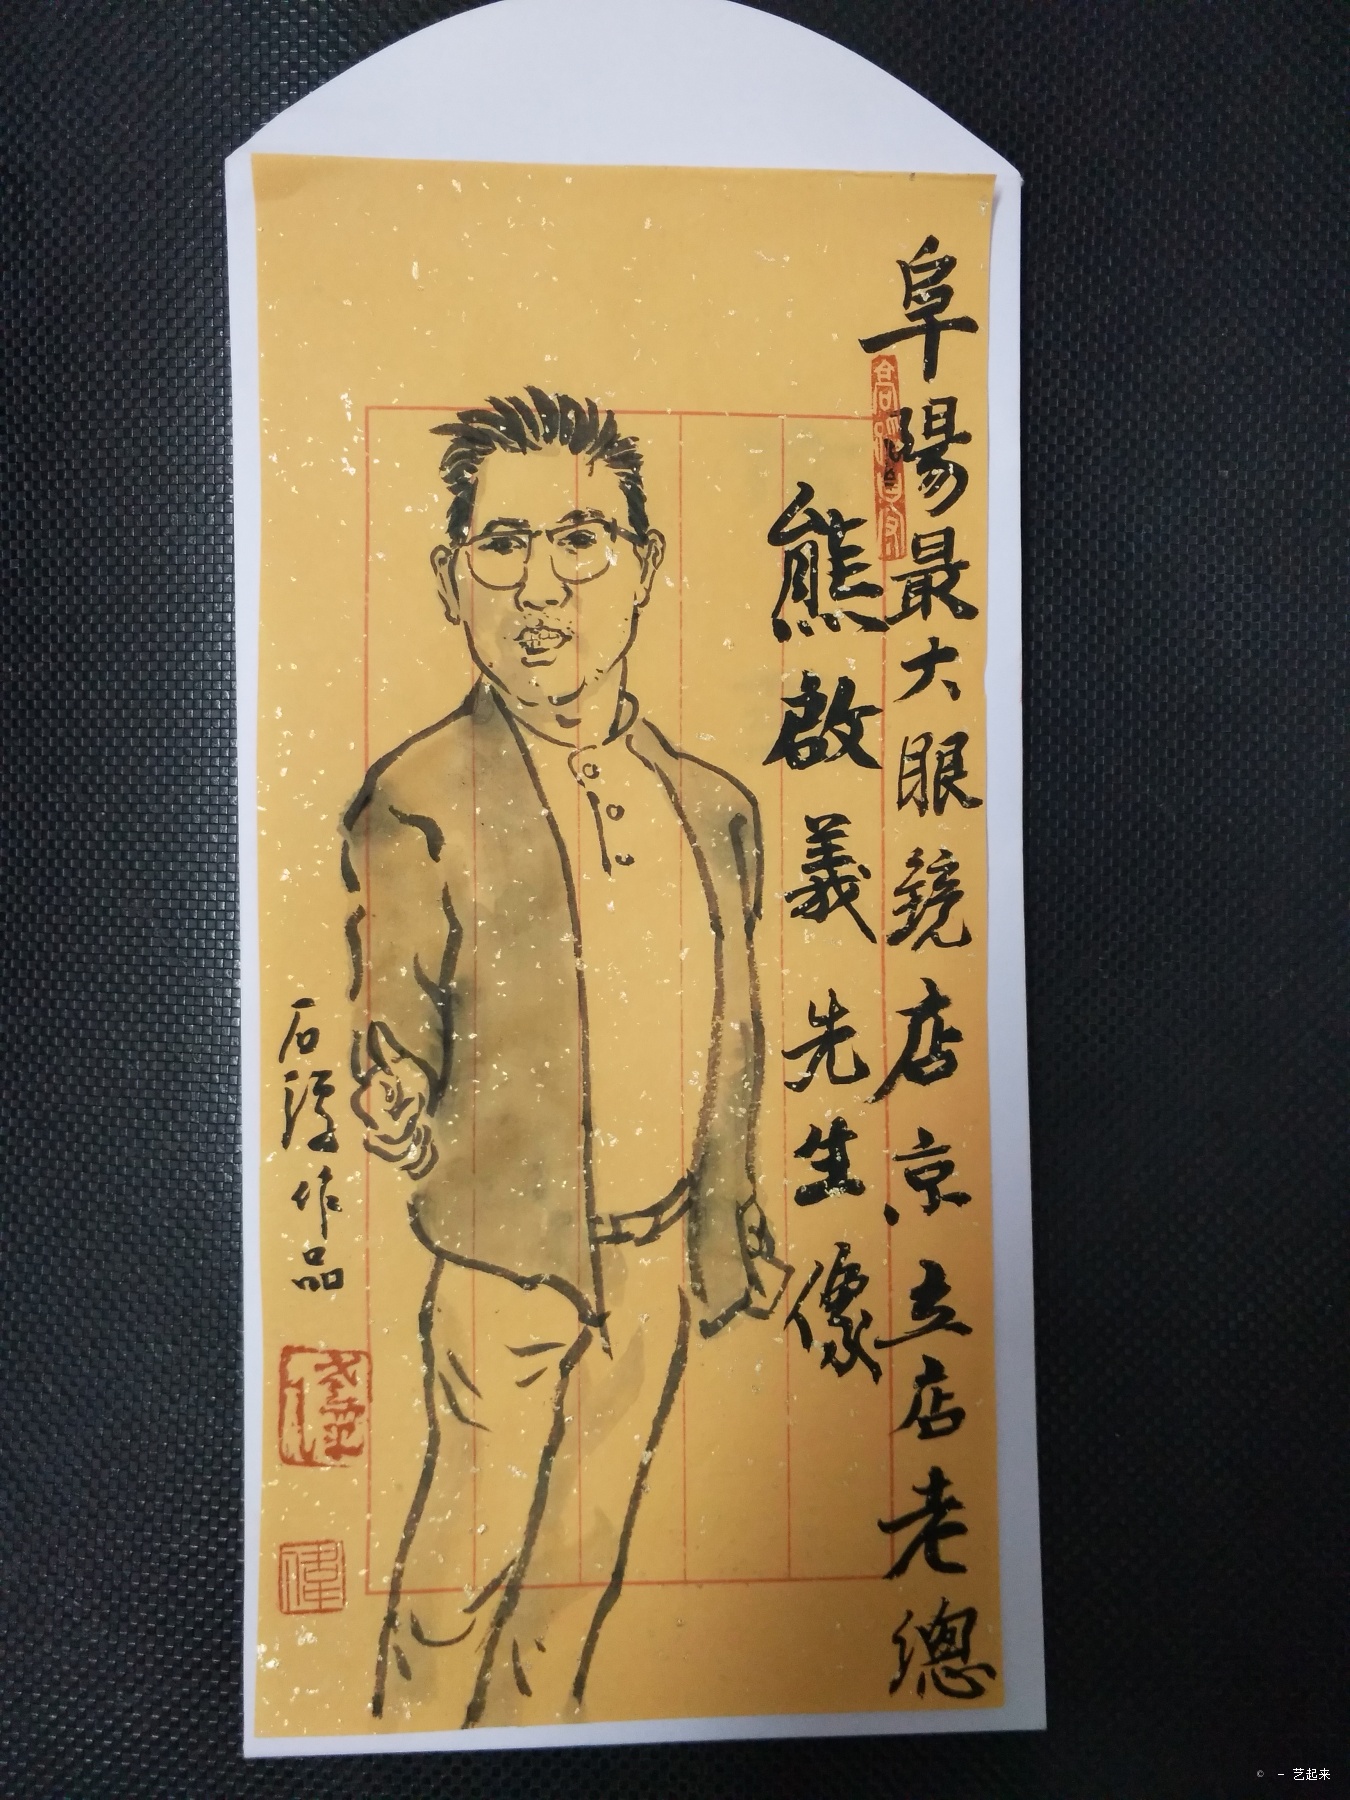 阜陽最大眼鏡店京立店老總
熊啟義先生像
石
作品
偉
© - 艺起来